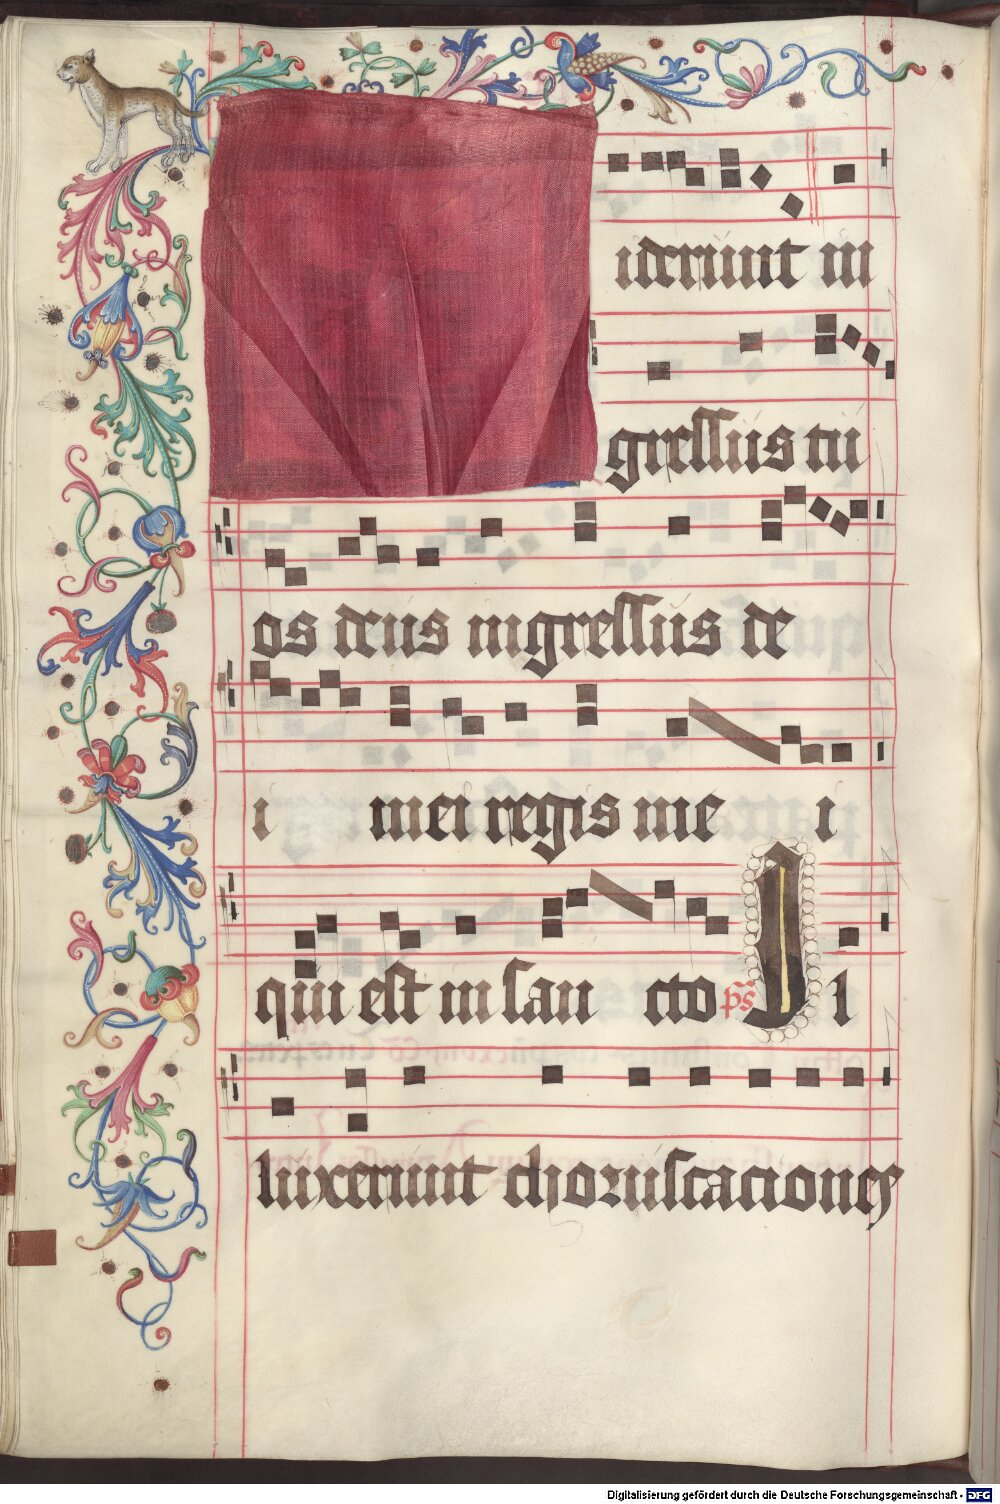 iderunt in
gressus tu
os deus ingressus de
i mei regis me i
qui est in san cto ps Il
luxerunt choruscaciones
Digitalisierung gefördert durch die Deutsche Forschungsgemeinschaft - DFG